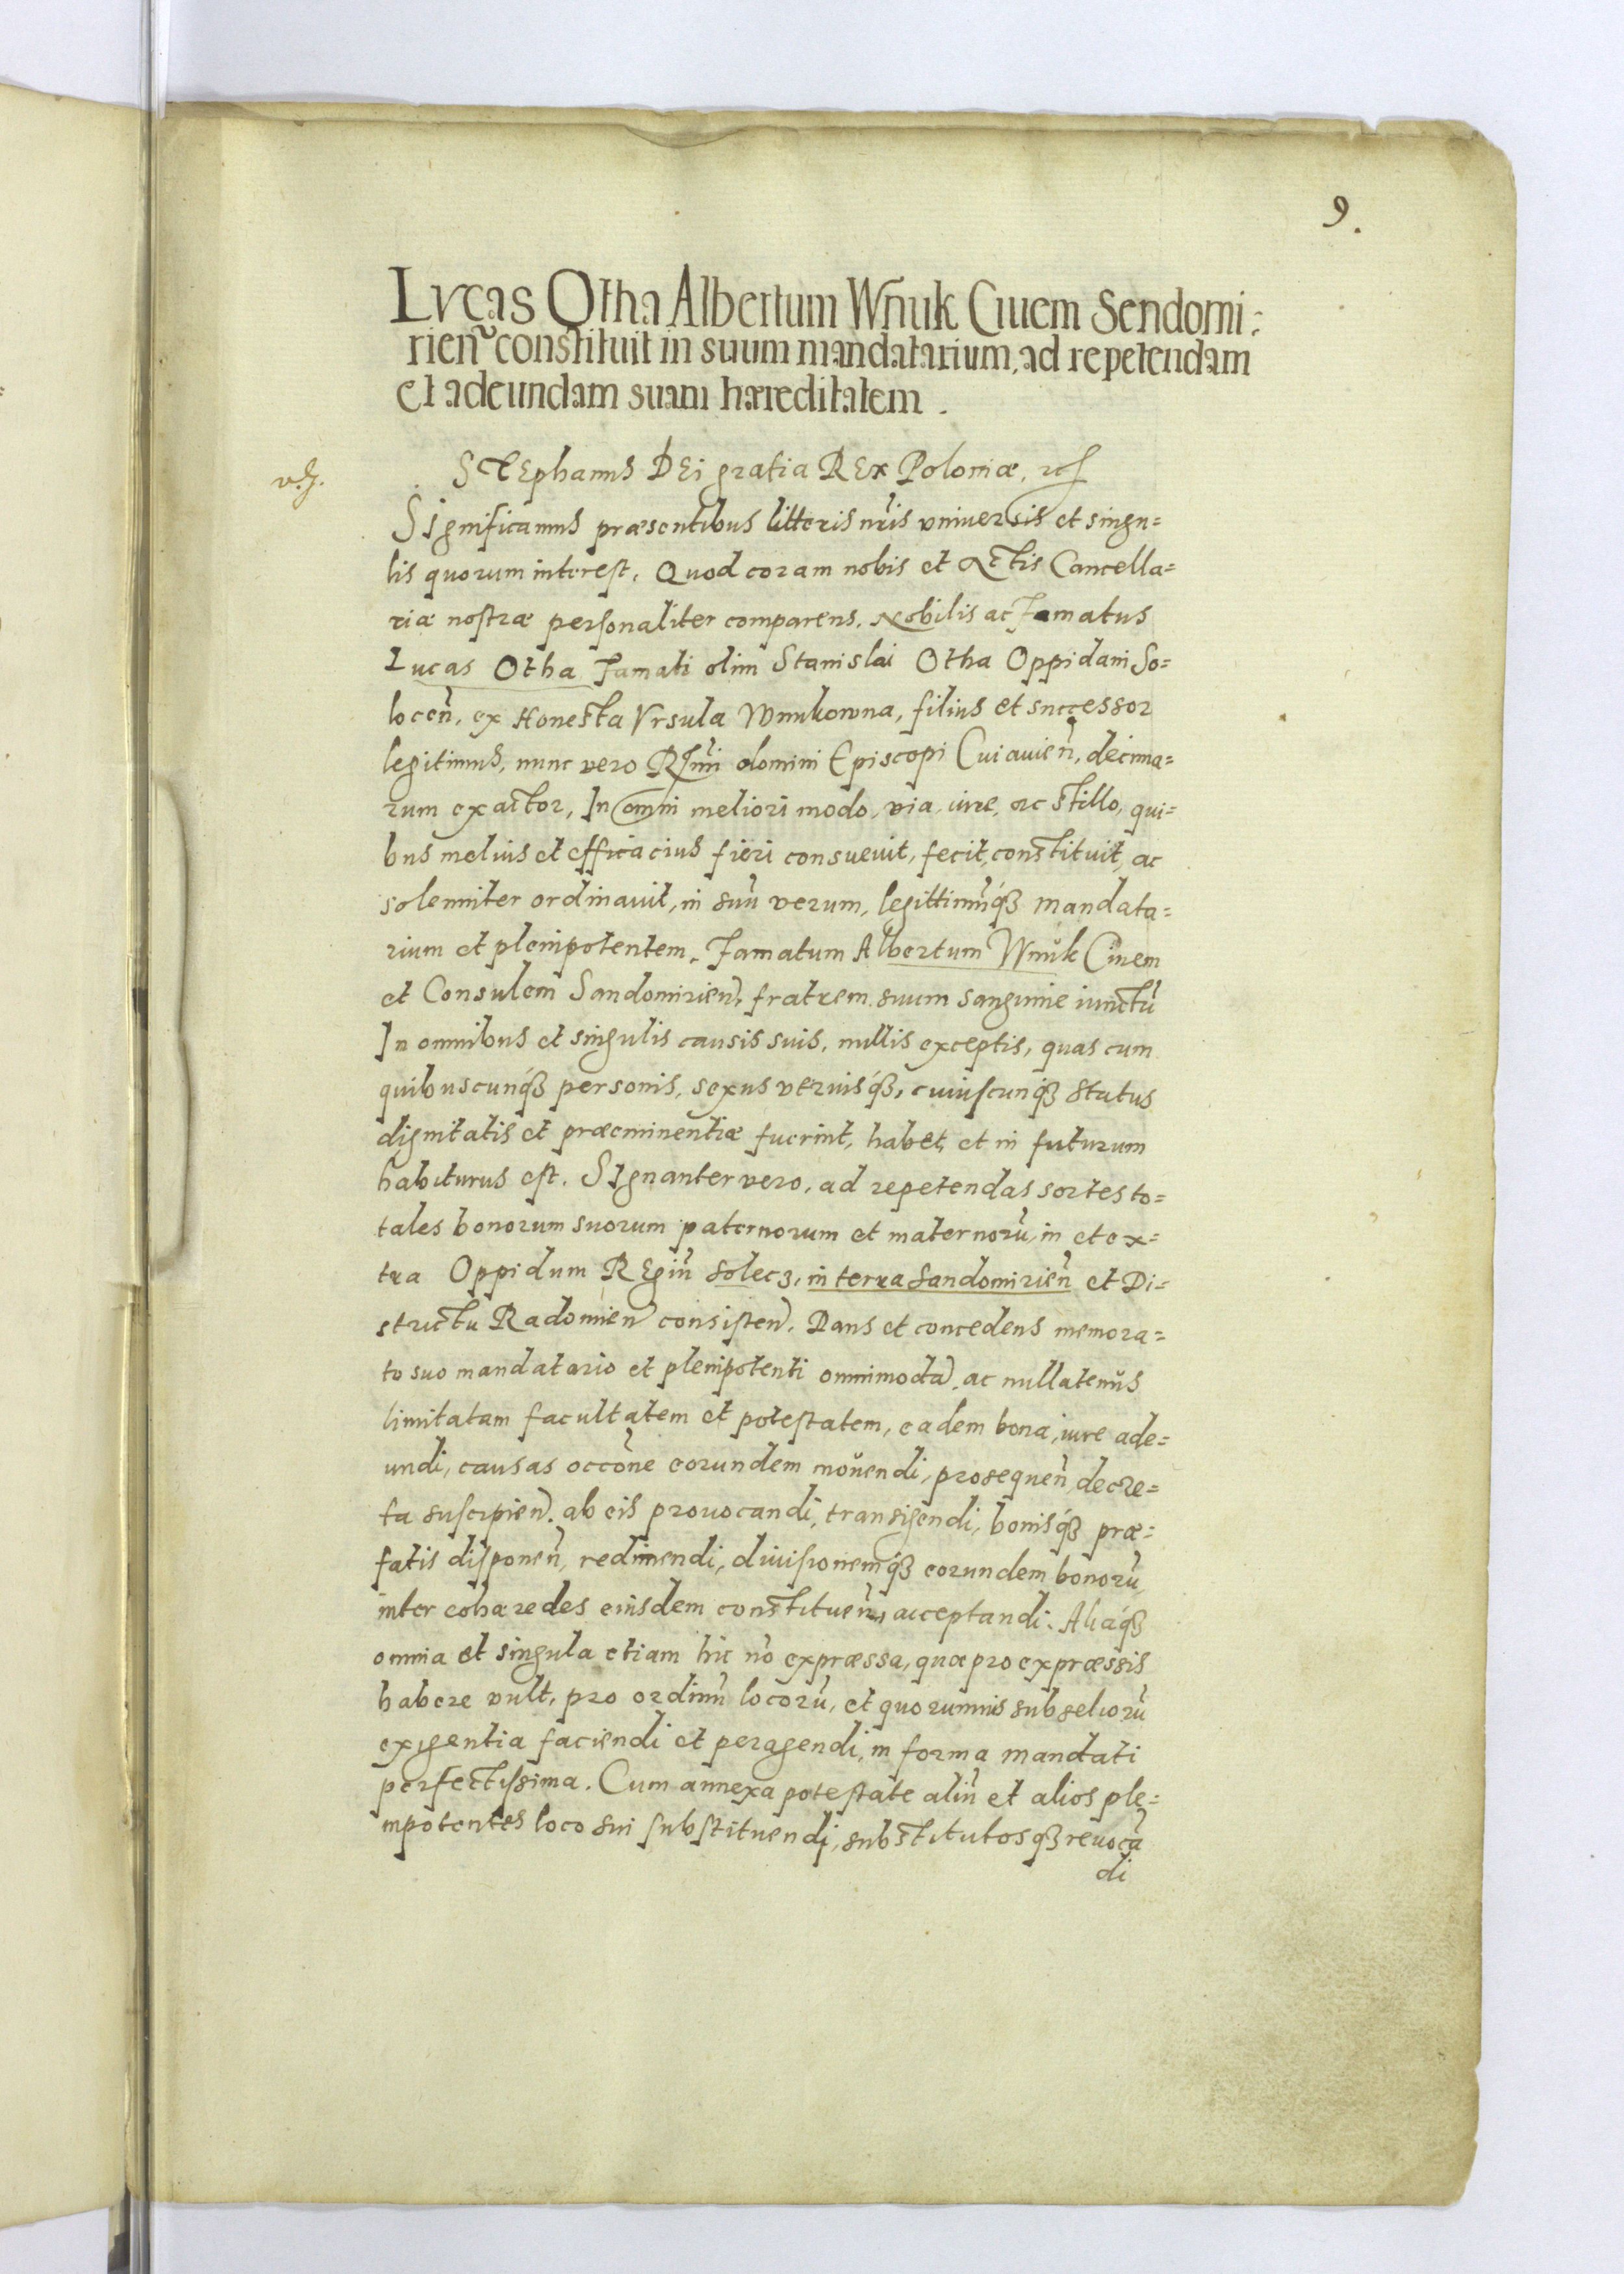 9.
Lvcas Otha Albertum Wnuk Ciuem Sendomi:
rien̄ constituit in suum mandatarium, ad repetendam
et adeundam suam hæreditatem.
STEphanus DEi gratia REx Poloniæ,
SIgnificamus præsentibus litteris nr̄is vniuersis et singu=
lis quorum interest. Quod coram nobis et Actis Cancella=
riæ nostræ personaliter comparens. Nobilis ac Famatus
Lucas Otha Famati olim Stanislai Otha Oppidani So=
locen̄, ex Honesta Vrsula Wnukowna, filius et successor
legitimus, nunc vero Rſmi domini Episcopi Cuiauien̄, decima=
rum exactor, In omni meliori modo, via, iure, ac stillo, qui=
bus melius et efficacius fieri consueuit, fecit, constituit, ac
solemniter ordinauit, in suū verum, legittimūq́ꝫ mandata=
rium et plenipotentem. Famatum Albertum Wnuk Ciuem
et Consulem Sandomirien̄, fratrem suum sanguine iunctū
In omnibus et singulis causis suis, nullis exceptis, quas cum
quibuscunq́ꝫ personis, sexus vtriusq́ꝫ, cuiuscunq́ꝫ status
dignitatis et præeminentiæ fuerint, habet, et in futurum
habiturus est. SIgnanter vero, ad repetendas sortes to=
tales bonorum suorum paternorum et maternorū, in et ex=
tra Oppidum REgiū Solecz, in terra Sandomirien̄ et Di=
strictu Radomien̄ consisten̄. Dans et concedens memora=
to suo mandatario et plenipotenti omnimodā, ac nullatenus
limitatam facultatem et potestatem, eadem bona, iure ade=
undi, causas occōne eorundem mouendi, prosequen̄, decre=
ta suscipien̄. ab eis prouocandi, transigendi, bonisq́ꝫ præ=
fatis disponen̄, redimendi, diuisionemq́ꝫ eorundem bonorū,
inter cohæredes eiusdem constituen̄, acceptandi. Aliaq́ꝫ
omnia et singula etiam hic nō expræssa, quæ pro expræssis
habere vult, pro ordinū locorū, et quorumuis subseliorū
exigentia faciendi et peragendi, in forma mandati
perfectissima. Cum annexa potestate aliū et alios ple=
nipotentes loco sui substituendi, substitutosqꝫ reuocā
di